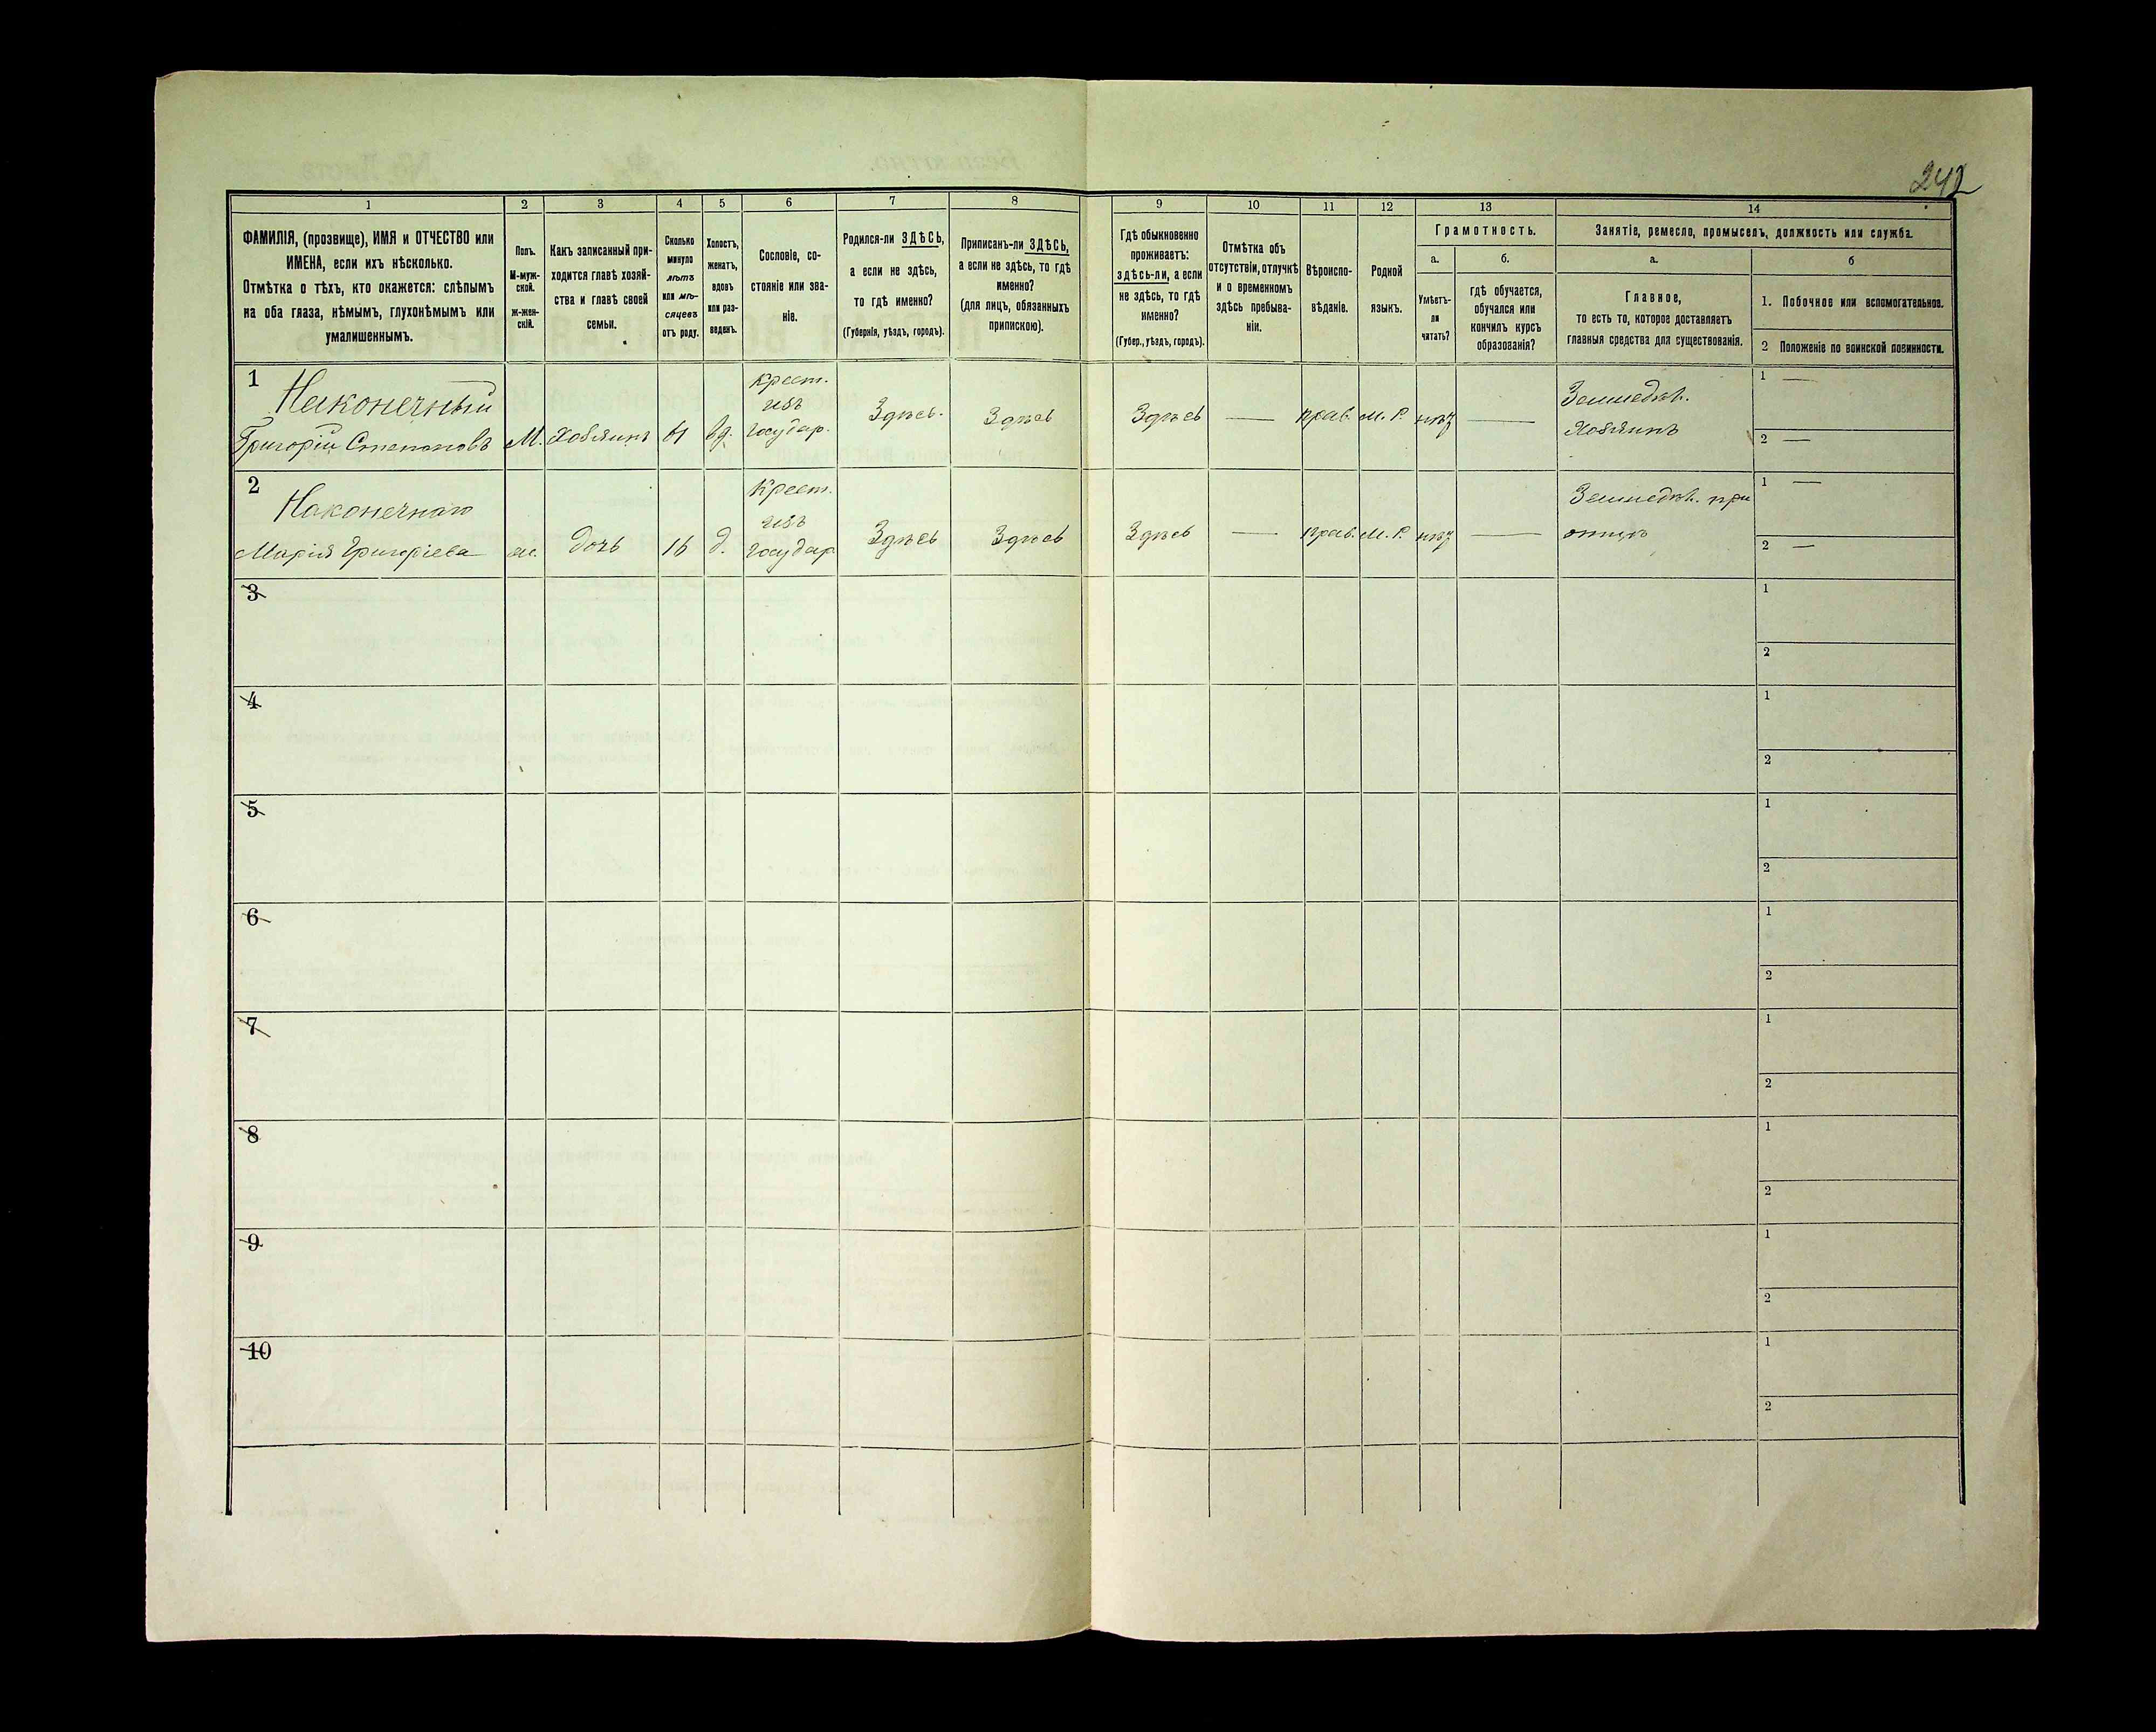 242
1
2
3
4
5
6
7
8
9
10
11
12
13
14
ФАМИЛІЯ, (прозвище), ИМЯ и ОТЧЕСТВО или
ИМЕНА, если ихъ нѣсколько.
Отмѣтка о тѣхъ, кто окажется: слѣпымъ
на оба глаза, нѣмымъ, глухонѣмымъ или
умалишеннымъ.
Полъ.
М-муж-
ской.
ж-жен-
скій.
Какъ записанный при-
ходится главѣ хозяй-
ства и главѣ своей
семьи.
Сколько
минуло
лѣтъ
или мѣ-
сяцевъ
отъ роду.
Холостъ,
женатъ,
вдовъ
или раз-
веденъ.
Сословіе, со-
стояніе или зва-
ніе.
Родился-ли ЗДѢСЬ,
а если не здѣсь,
то гдѣ именно?
(Губернія, уѣздъ, городъ).
Приписанъ-ли ЗДѢСЬ,
а если не здѣсь, то гдѣ
именно?
(для лицъ, обязанныхъ
припискою).
Гдѣ обыкновенно
проживаетъ:
здѣсь-ли, а если
не здѣсь, то гдѣ
именно?
(Губер., уѣздъ, городъ).
Отмѣтка объ
отсутствіи, отлучкѣ
и о временномъ
здѣсь пребыва-
ніи.
Вѣроиспо-
вѣданіе.
Родной
языкъ.
Грамотность.
а.
Умѣетъ-
ли
читать?
б.
гдѣ обучается,
обучался или
кончилъ курсъ
образованія?
Занятіе, ремесло, промыселъ, должность или служба.
а.
Главное,
то есть то, которое доставляетъ
главныя средства для существованія.
б
1. Побочное или вспомогательное.
2 Положеніе по воинской повинности.
1
Наконечный
Григорій Степановъ
М.
Хозяинъ
61
вд.
Крест.
изъ
государ.
Здѣсь.
Здѣсь
Здѣсь
—
прав.
М. Р.
нѣт
—
Земледѣл.
Хозяинъ
1 —
2 —
2
Наконечная
Марія Григоріева
ж.
дочь
16
д.
Крест.
изъ
государ
Здѣсь
Здѣсь
Здѣсь
—
прав.
М. Р.
нѣт
—
Земледѣл. при
отцѣ
1 —
2 —
3
1
2
4
1
2
5
1
2
6
1
2
7
1
2
8
1
2
9
1
2
10
1
2